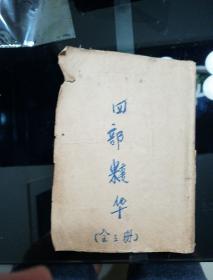 四部精华
(全三册)